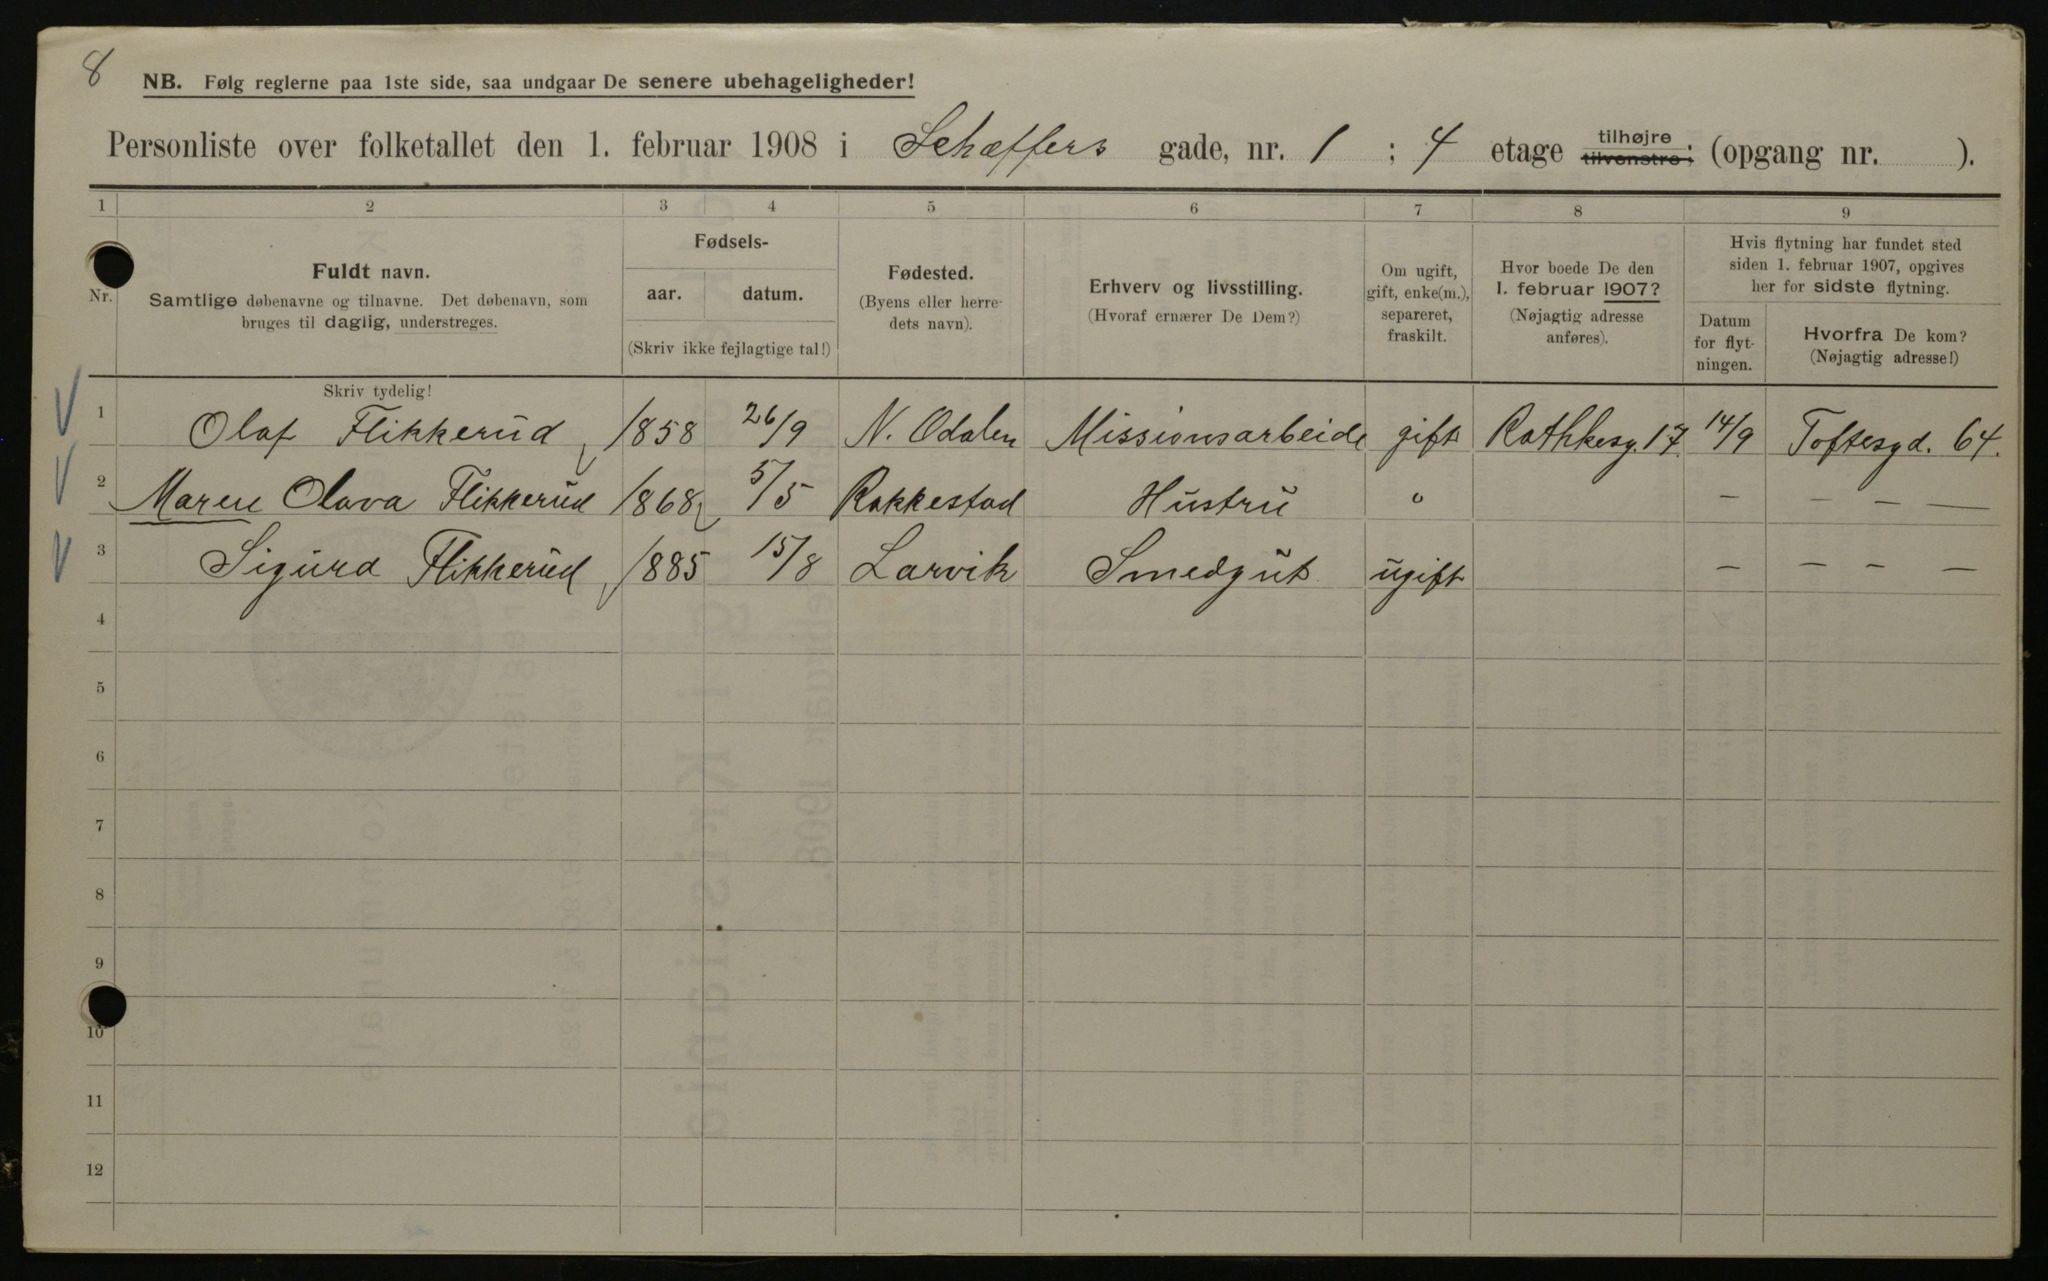 8
NB. Følg reglerne paa 1ste side, saa undgaar De senere ubehageligheder!
Personliste over folketallet den 1. februar 1908 i Schæffers gade, nr. 1 ; 4 etage tilhøjre tilvenstre; (opgang nr. ).
1 2 3 4 5 6 7 8 9
Nr.
Fuldt navn.
Samtlige døbenavne og tilnavne. Det døbenavn, som
bruges til daglig, understreges.
Fødsels-
aar. datum.
(Skriv ikke fejlagtige tal!)
Fødested.
(Byens eller herre-
dets navn).
Erhverv og livsstilling.
(Hvoraf ernærer De Dem?)
Om ugift,
gift, enke(m.),
separeret,
fraskilt.
Hvor boede De den
1. februar 1907?
(Nøjagtig adresse
anføres).
Hvis flytning har fundet sted
siden 1. februar 1907, opgives
her for sidste flytning.
Datum
for flyt-
ningen.
Hvorfra De kom?
(Nøjagtig adresse!)
Skriv tydelig!
1 Olaf Flikkerud 1858 26/9 N. Odalen Missionsarbeide gift Rathkesg. 17 14/9 Toftesgd. 64.
2 Maren Olava Flikkerud 1868 5/5 Rakkestad Hustru " — — — —
3 Sigurd Flikkerud 1885 15/8 Larvik Smedgut ugift — — — —
4
5
6
7
8
9
10
11
12